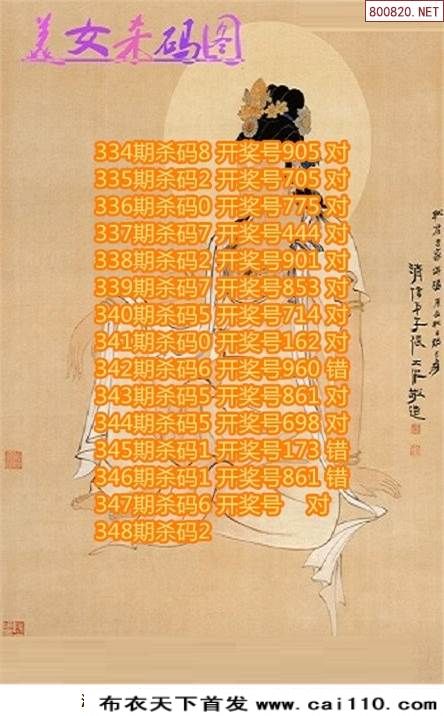 800820.NET
美女杀码图
334期杀码8 开奖号905 对
335期杀码2 开奖号705 对
336期杀码0 开奖号775 对
337期杀码7 开奖号444 对
338期杀码2 开奖号901 对
339期杀码7 开奖号853 对
340期杀码5 开奖号714 对
341期杀码0 开奖号162 对
342期杀码6 开奖号960 错
343期杀码5 开奖号861 对
344期杀码5 开奖号698 对
345期杀码1 开奖号173 错
346期杀码1 开奖号861 错
347期杀码6 开奖号 对
348期杀码2
布衣天下首发 www.cai110.com